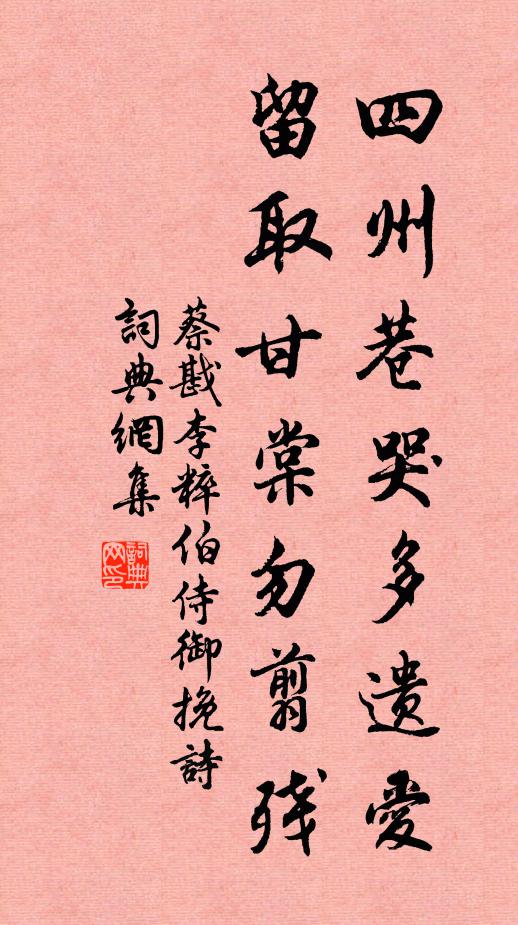 四州巷哭多遗愛
留取甘棠勿翦残
蔡戡李粹伯侍御挽詩
詞典網集
詞典網印